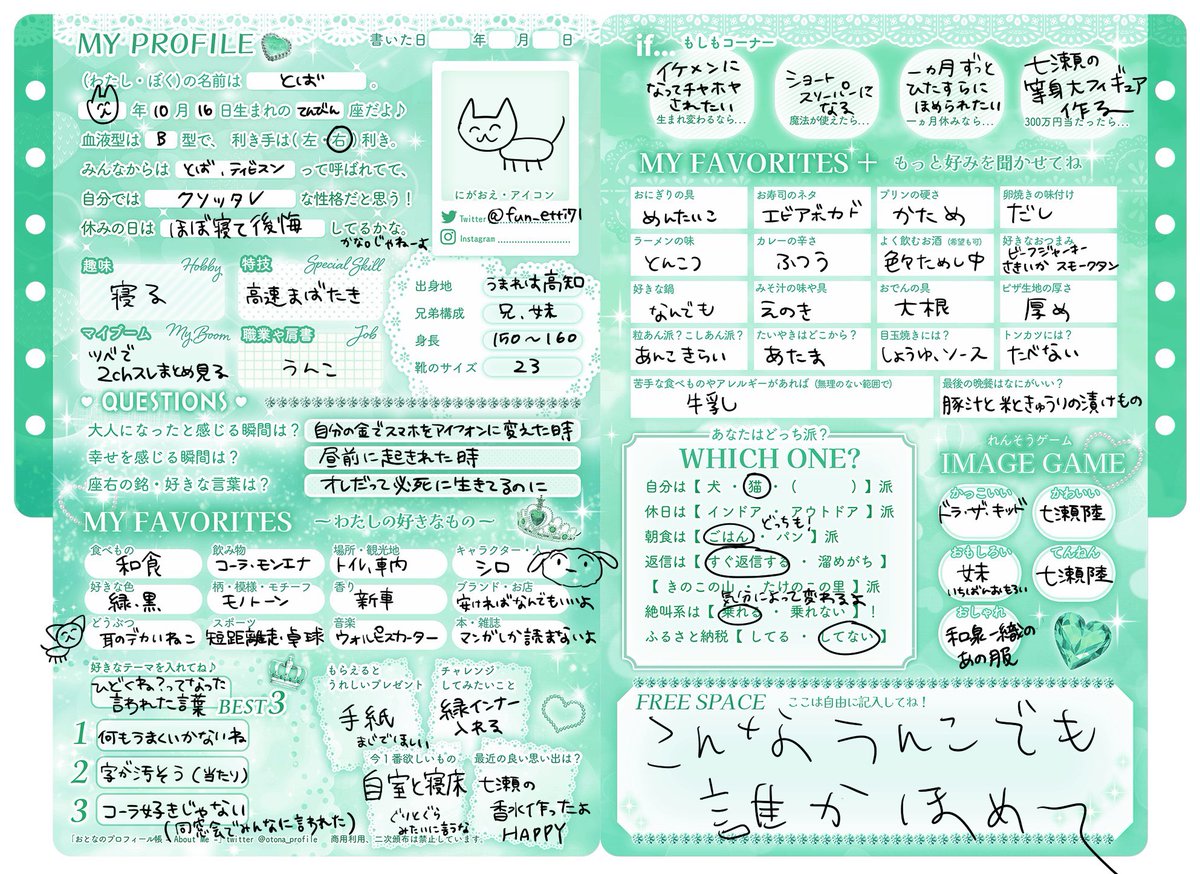 MY PROFILE
書いた日 年 月 日
(わたし・ぼく)の名前は とば 。
年 10 月 16 日生まれの てんびん 座だよ♪
血液型は B 型で、 利き手は(左・右)利き。
みんなからは とば、ティビスン って呼ばれてて、
自分では クソッタレ な性格だと思う!
休みの日は ほぼ寝て後悔 してるかな。
かな。じゃねーよ
にがおえ・アイコン
Twitter @fun_etti71
Instagram
趣味 Hobby
寝る
特技 Special Skill
高速まばたき
マイブーム My Boom
ツベで
2chスレまとめ見る
職業や肩書 Job
うんこ
出身地 うまれは高知
兄弟構成 兄、妹
身長 150〜160
靴のサイズ 23
QUESTIONS
大人になったと感じる瞬間は? 自分の金でスマホをアイフォンに変えた時
幸せを感じる瞬間は? 昼前に起きれた時
座右の銘・好きな言葉は? オレだって必死に生きてるのに
MY FAVORITES 〜わたしの好きなもの〜
食べもの 和食
飲み物 コーラ・モンエナ
場所・観光地 トイレ、車内
キャラクター・人 シロ
好きな色 緑、黒
柄・模様・モチーフ モノトーン
香り 新車
ブランド・お店 安ければなんでもいいよ
どうぶつ 耳のデカいねこ
スポーツ 短距離走・卓球
音楽 ウォルピスカーター
本・雑誌 マンガしか読まないよ
好きなテーマを入れてね♪
ひどくね?ってなった
言われた言葉 BEST3
1 何もうまくいかないね
2 字が汚そう(当たり)
3 コーラ女子きじゃない
(同窓会でみんなに言われた)
もらえると
うれしいプレゼント
手紙
まじでほしい
チャレンジ
してみたいこと
緑インナー
入れる
今1番欲しいもの
自室と寝床
ぐりとぐら
みたいに言うな
最近の良い思い出は?
七瀬の
香水作ったよ
HAPPY
「おとなのプロフィール帳 - About Me -」 twitter @otona_profile 商用利用、二次頒布は禁止しています。
if... もしもコーナー
イケメンに
なってチャホヤ
されたい
生まれ変わるなら…
ショート
スリーパーに
なる
魔法が使えたら…
一ヵ月ずっと
ひたすらに
ほめられたい
一ヵ月休みなら…
七瀬の
等身大フィギュア
作る
300万円当だったら…
MY FAVORITES + もっと好みを聞かせてね
おにぎりの具 めんたいこ
お寿司のネタ エビアボカド
プリンの硬さ かため
卵焼きの味付け だし
ラーメンの味 とんこつ
カレーの辛さ ふつう
よく飲むお酒 (希望も可) 色々ためし中
好きなおつまみ ビーフジャーキー
さきいか スモークタン
好きな鍋 なんでも
みそ汁の味や具 えのき
おでんの具 大根
ピザ生地の厚さ 厚め
粒あん派?こしあん派? あんこきらい
たいやきはどこから? あたま
目玉焼きには? しょうゆ、ソース
トンカツには? たべない
苦手な食べものやアレルギーがあれば (無理のない範囲で)
牛乳し
最後の晩餐はなにがいい?
豚汁と米ときゅうりの漬けもの
あなたはどっち派?
WHICH ONE?
自分は【 犬 ・ 猫 ・ ( ) 】派
休日は【 インドア ・ アウトドア 】派
どっちも!
朝食は【 ごはん ・ パン 】派
返信は【 すぐ返信する ・ 溜めがち 】
【 きのこの山 ・ たけのこの里 】派
気分によって変わるよ
絶叫系は【 乗れる ・ 乗れない 】!
ふるさと納税【 してる ・ してない 】
れんそうゲーム
IMAGE GAME
かっこいい ドラ・ザ・キッド
かわいい 七瀬陸
おもしろい 妹
いちばんおもろい
てんねん 七瀬陸
おしゃれ 和泉一織の
あの服
FREE SPACE ここは自由に記入してね!
こんなうんこでも
誰かほめて